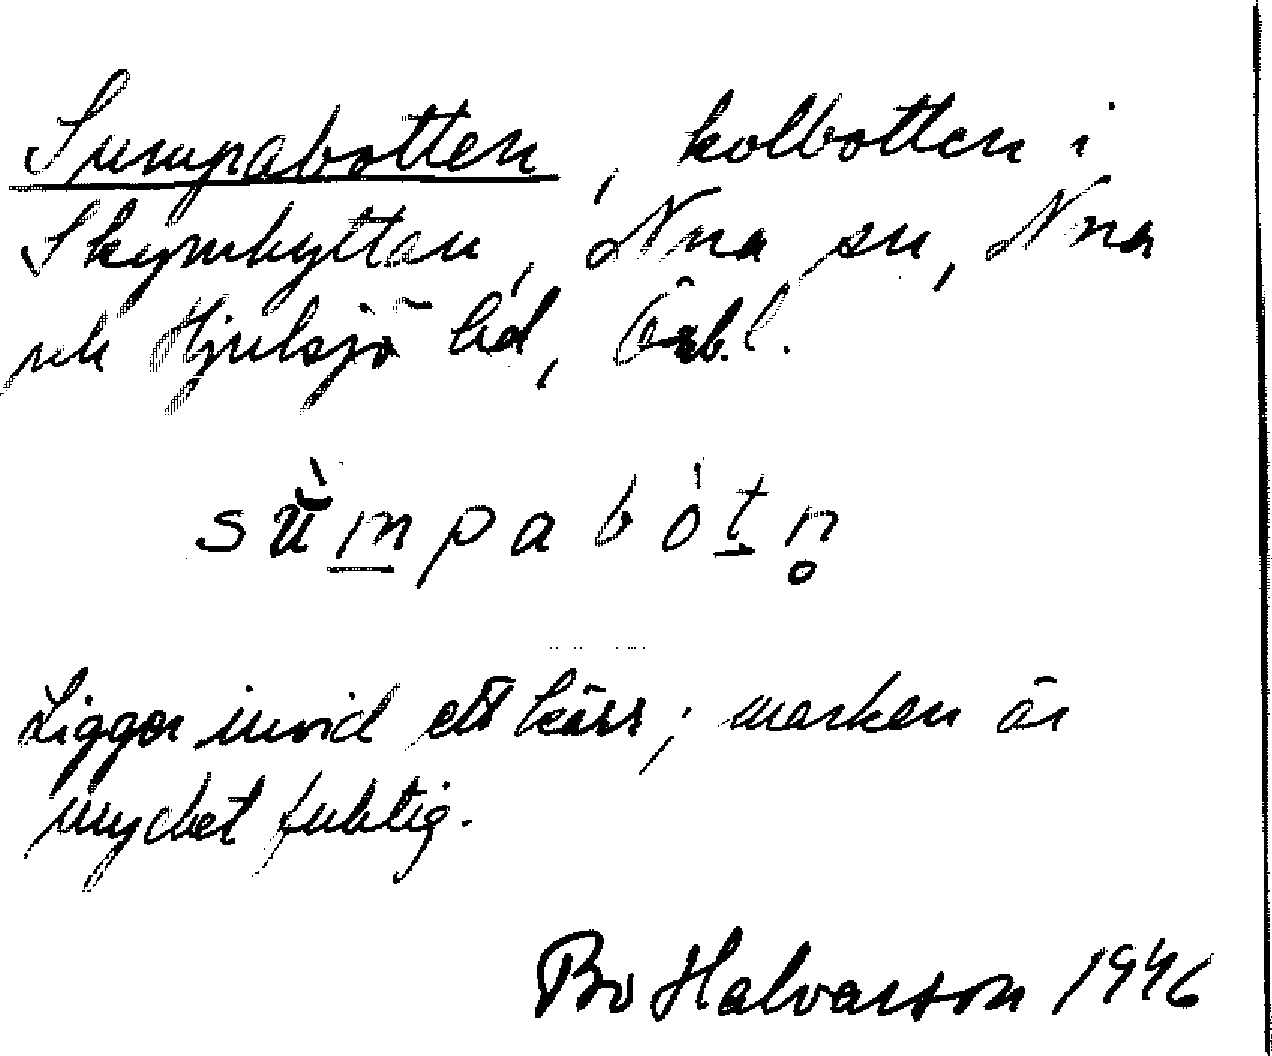 Sumpabotten, kolbotten i
Skymhyttan, Nora sn, Nora
och Hjulsjö bd, Örb. l.
sŭ̀mpabótn̥
Ligger invid ett kärr; marken är
mycket fuktig.
Bo Halvarson 1946